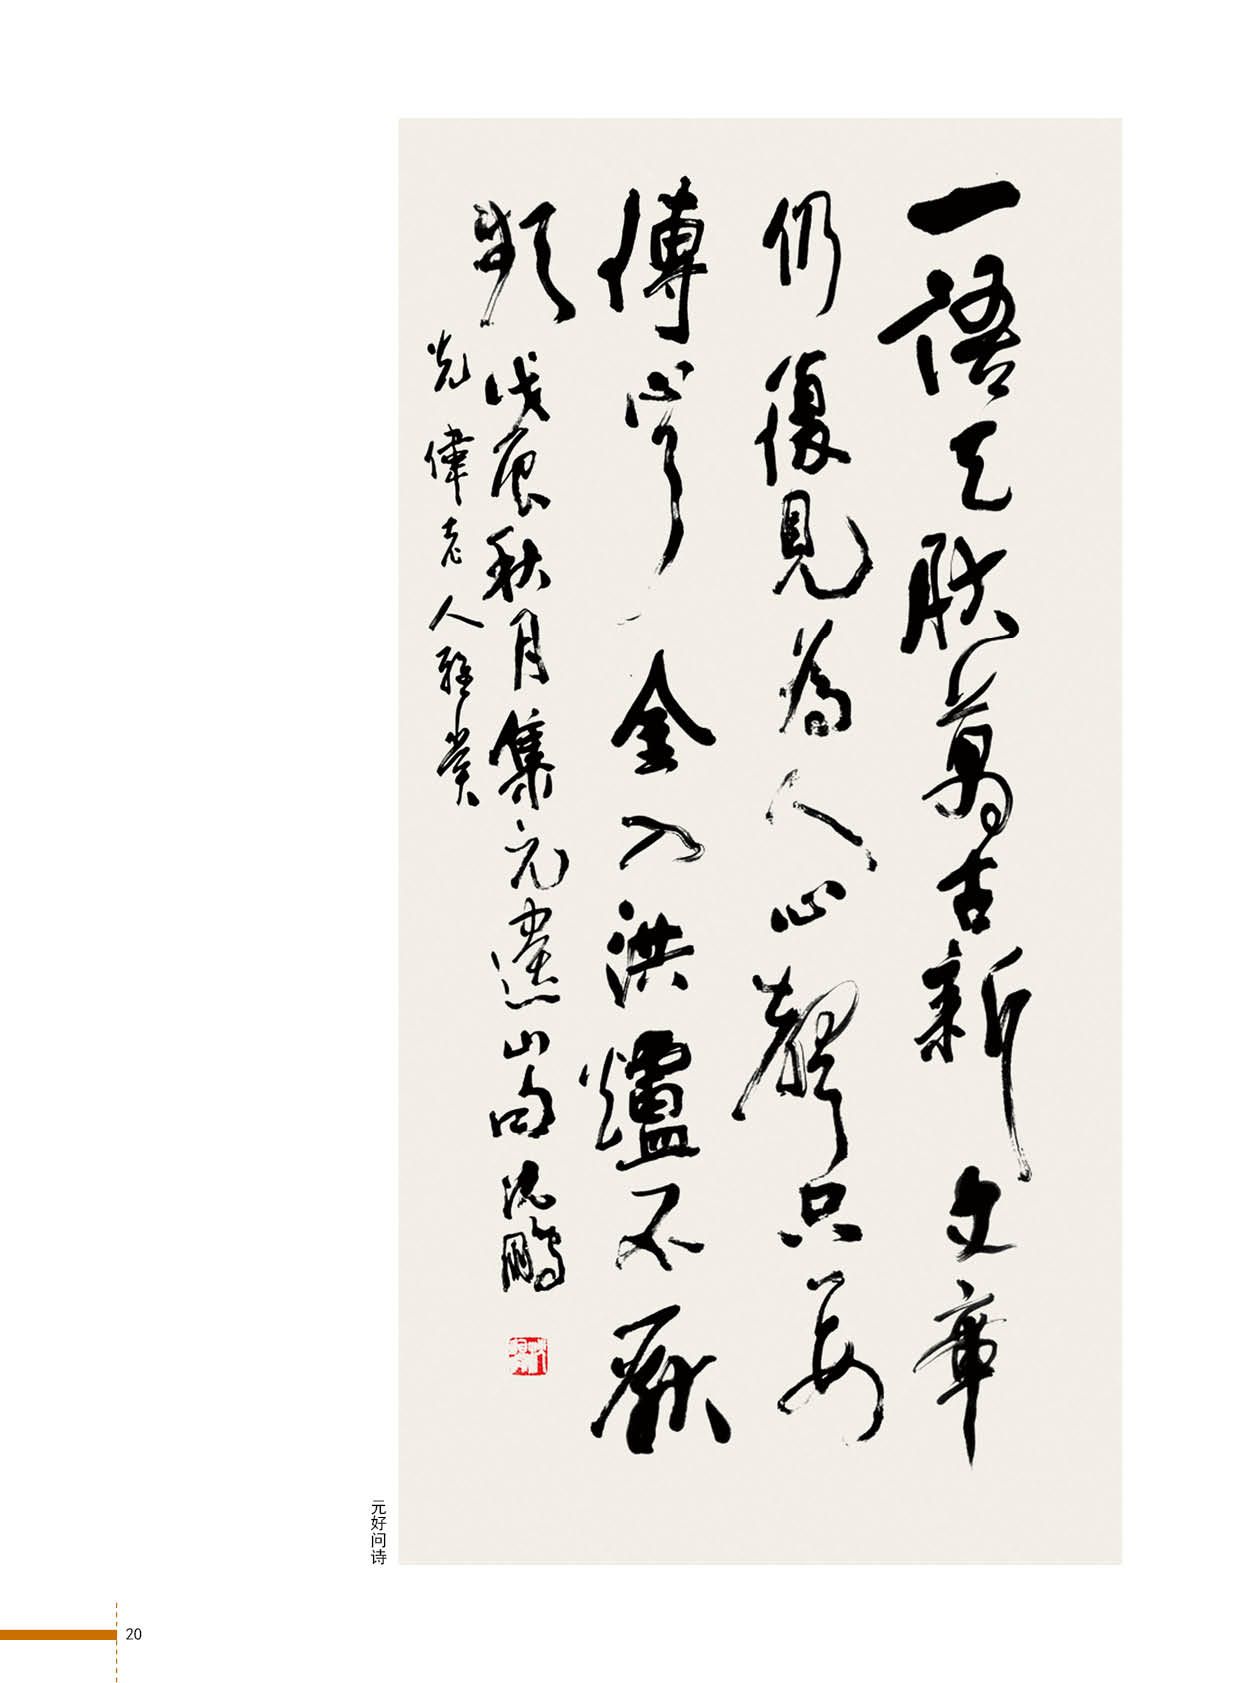 一語天然萬古新文章
仍復見為人心聲只要
傳心了金入洪爐不厭
頻 戊辰秋月集元遺山句 沈鵬
光偉老人雅賞
元好问诗
20